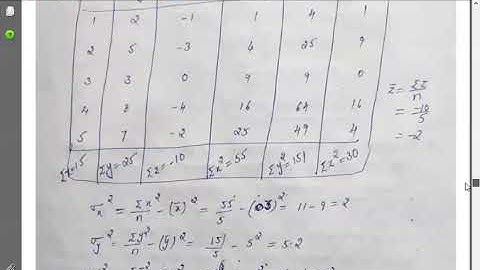 1 2 -1 1 4 1
2 5 -3 4 25 9
3 3 0 9 9 0
4 8 -4 16 64 16
5 7 -2 25 49 4
Σx=15 Σy=25 Σz=-10 Σx²=55 Σy²=151 Σz²=30
z̄ = Σz/n
= -10/5
= -2
σx² = Σx²/n - (x̄)² = 55/5 - (03)² = 11-9 = 2
σy² = Σy²/n - (ȳ)² = 151/5 - 5² = 5.2